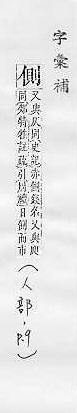 字彙補
側 又與仄同史記赤側錢名又與昃
同郊特牲註疏引周禮日側而市
(人部, p.9)